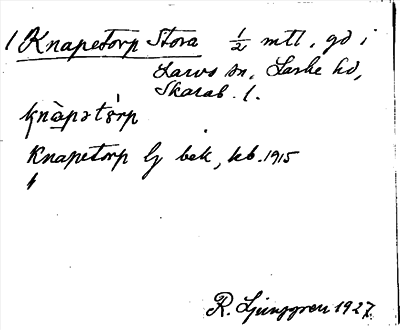 1 Knapetorp Stora 1/2 mtl, gd i
Larvs sn, Laske hd,
Skarab. l.
knàpətó̀rp
Knapetorp lj bek, kb. 1915
〃
R. Ljunggren 1927